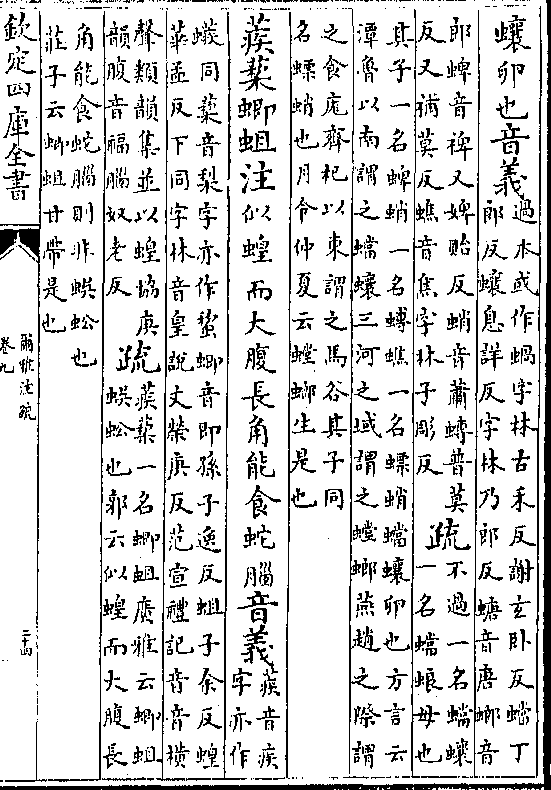 蠰卵也音義過本或作蝸字林古禾反謝𤣥卧反蟷丁
郎反蠰息詳反字林乃郎反螗音唐螂音
郎蜱音裨又婢貽反蛸音蕭𧍪普莫
反又補莫反蟭音焦字林子彫反疏不過一名蟷蠰
一名蟷蜋母也
其子一名蜱蛸一名𧍪蟭一名螵蛸蟷蠰卵也方言云
潭魯以南謂之蟷蠰三河之域謂之螳螂燕趙之際謂
之食庬齊杞以東謂之馬谷其子同
名螵蛸也月令仲夏云螳螂生是也
蒺蔾蝍蛆注似蝗而大腹長角能食蛇腦音義蒺音疾
字亦作
螏同蔾音梨字亦作蟍蝍音即孫子逸反蛆子余反蝗
華孟反下同字林音皇説文榮庚反范宣禮記音音横
聲類韻集並以蝗協庚
韻腹音福腦奴老反疏蒺蔾一名蝍蛆廣雅云蝍蛆
蜈蚣也郭云似蝗而大腹長
角能食蛇腦則非蜈蚣也
莊子云蝍蛆甘帶是也
欽定四庫全書
爾雅注疏
卷九
二十四